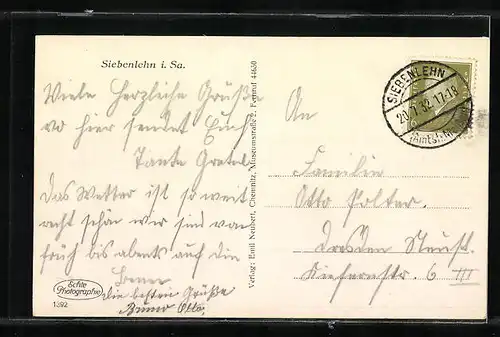 Siebenlehn i. Sa.
Viele herzliche Grüße
von hier sendet Euch
Tante Gretel
Das Wetter ist so weit
recht schön wir sind von
früh bis abends auf die
Beine
die besten Grüße
Bruno Otto,
Echte
Photographie
1392
Verlag: Emil Neubert, Chemnitz, Museumstraße 2. Fernruf 44630
SIEBENLEHN
20.7.32.17-18
(Amtsh.
An
Familie
Otto Polter.
Dresden Neust.
6 III